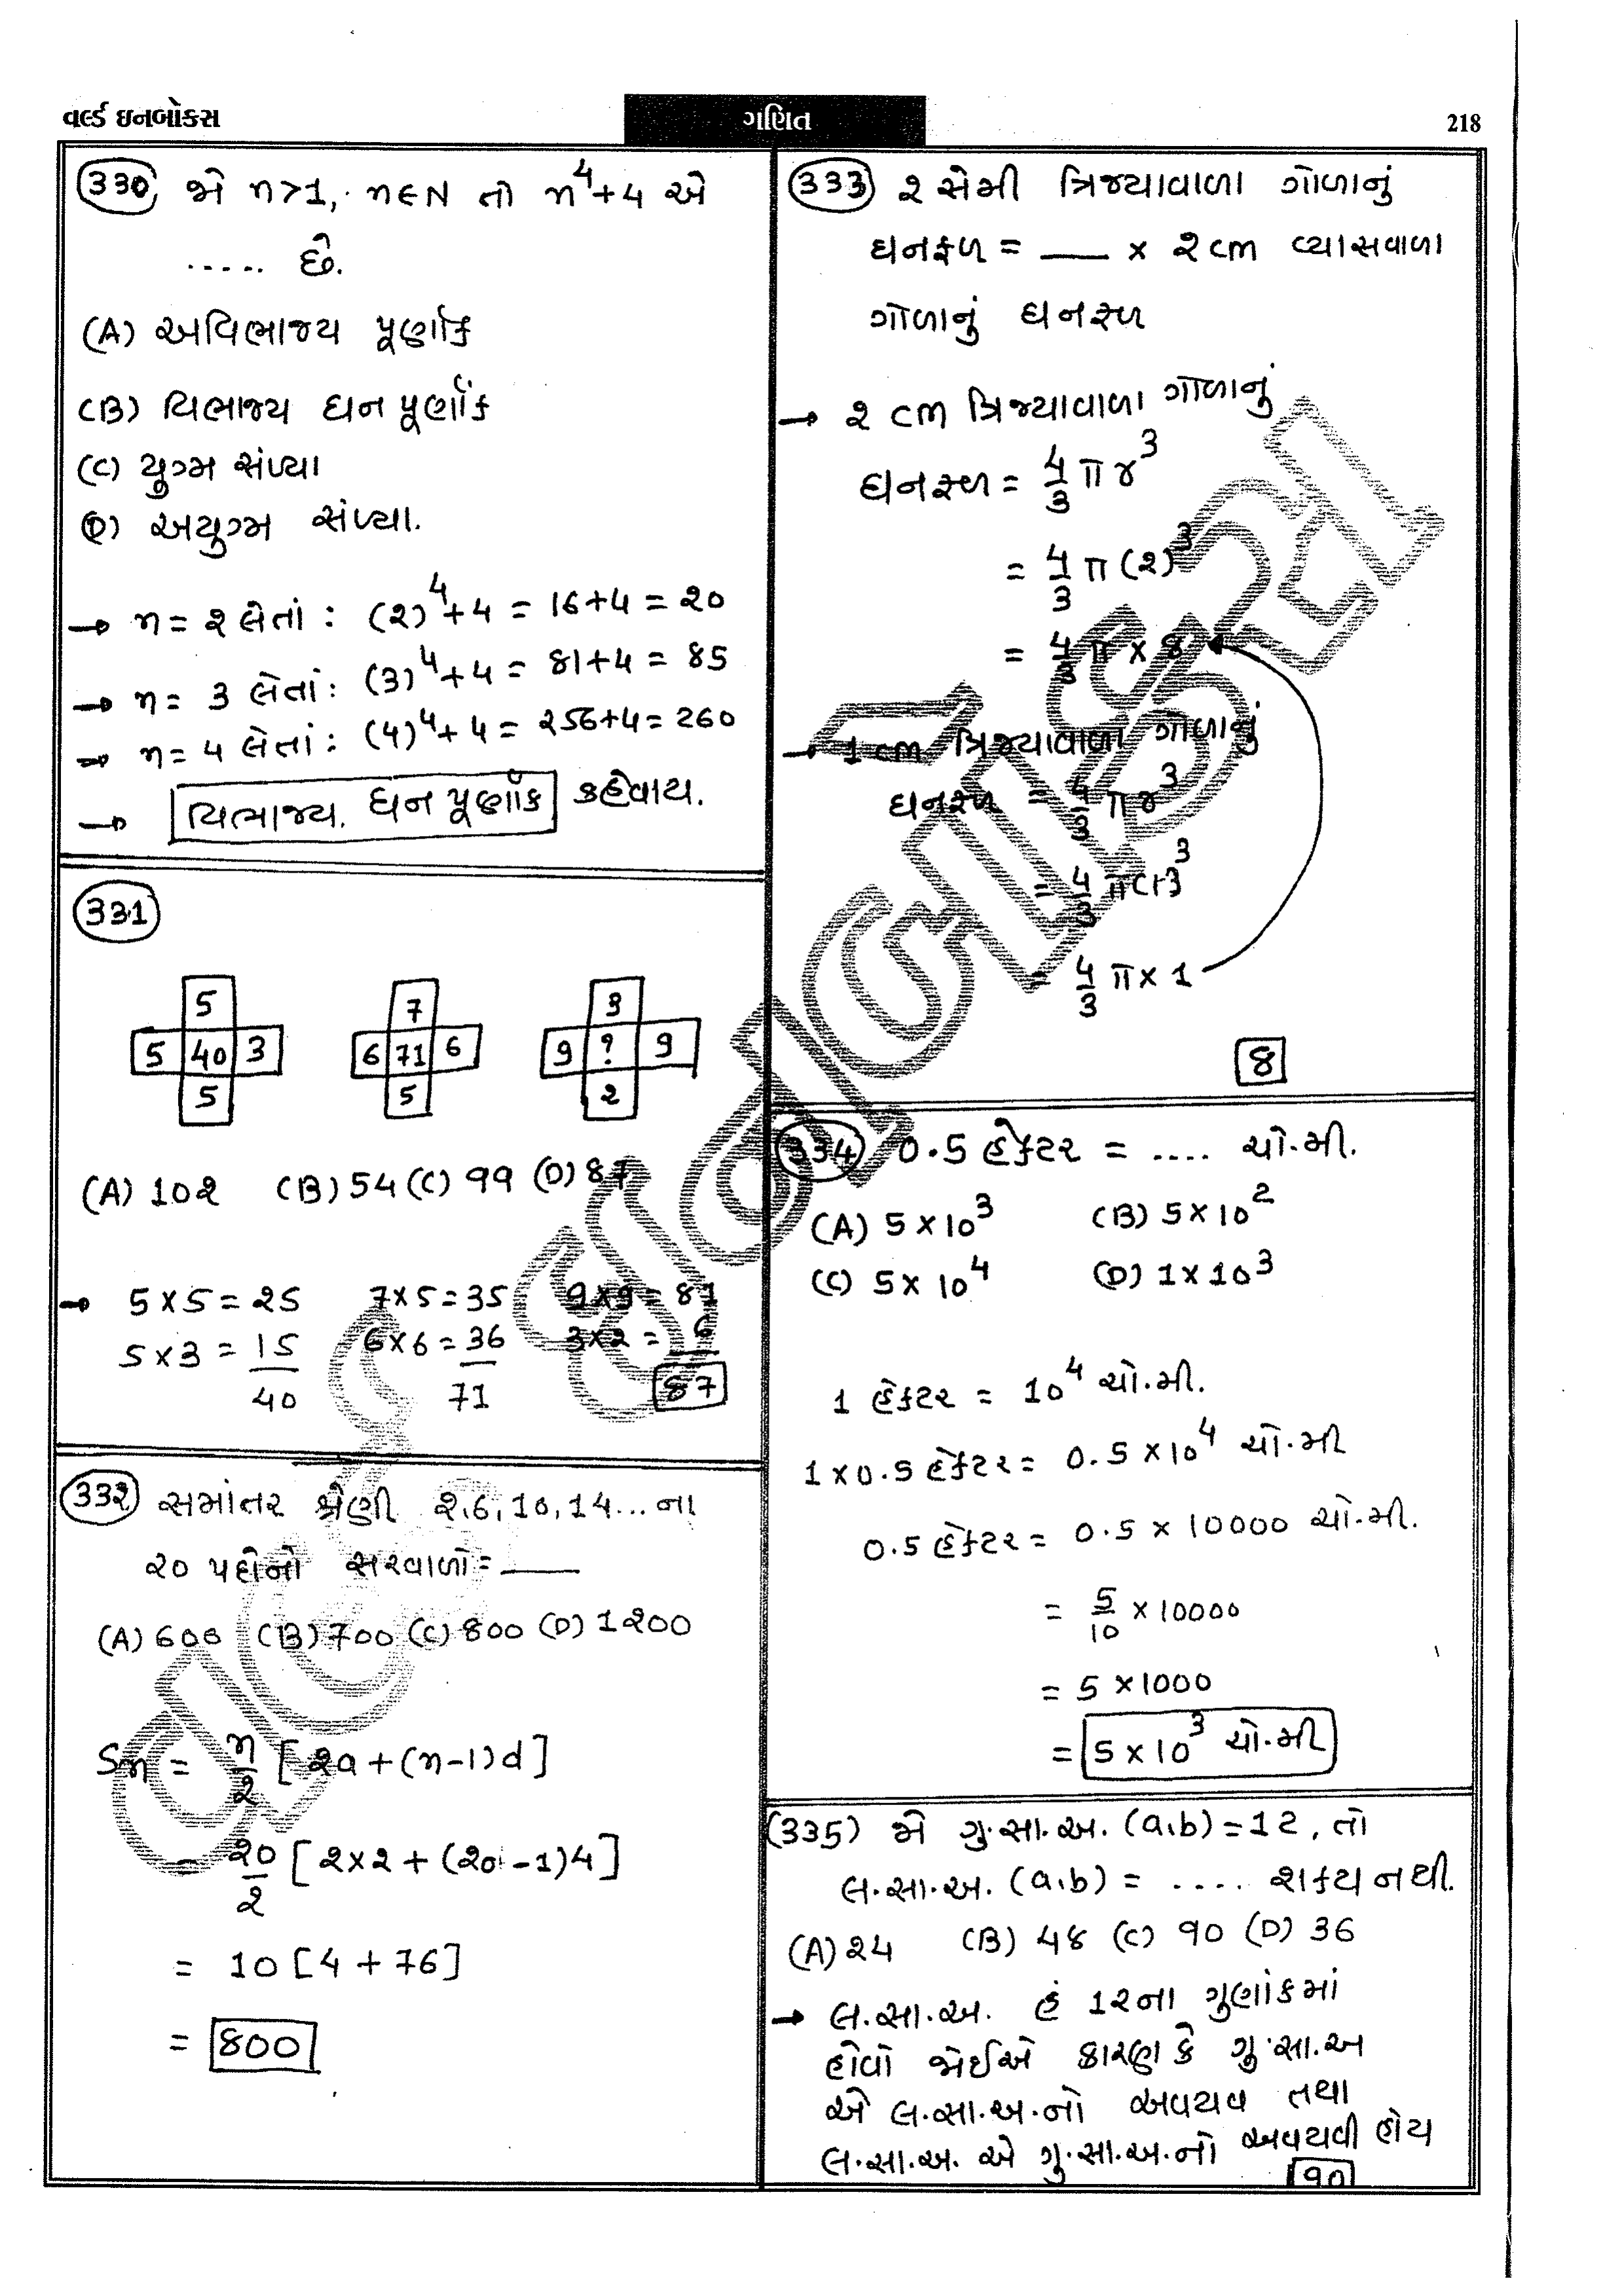 વર્લ્ડ ઇનબોક્સ
ગણિત
218
(330) જો n>1, n∈N તો n⁴+4 એ
..... છે.
(A) અવિભાજ્ય પૂર્ણાંક
(B) વિભાજ્ય ઘન પૂર્ણાંક
(C) યુગ્મ સંખ્યા
(D) અયુગ્મ સંખ્યા.
→ n = 2 લેતાં : (2)⁴+4 = 16+4 = 20
→ n = 3 લેતાં : (3)⁴+4 = 81+4 = 85
→ n = 4 લેતાં : (4)⁴+4 = 256+4 = 260
→ વિભાજ્ય. ઘન પૂર્ણાંક કહેવાય.
(331)
5 7 3
5 40 3 6 71 6 9 ? 9
5 5 2
(A) 102 (B) 54 (C) 99 (D) 87
→ 5×5 = 25 7×5 = 35 9×9 = 81
5×3 = 15 6×6 = 36 3×2 = 6
40 71 87
(332) સમાંતર શ્રેણી 2,6,10,14...ના
20 પદોનો સરવાળો = ___
(A) 600 (B) 700 (C) 800 (D) 1200
Sn = n/2 [2a+(n-1)d]
= 20/2 [2×2+(20-1)4]
= 10 [4+76]
= 800
(333) 2 સેમી ત્રિજ્યાવાળા ગોળાનું
ઘનફળ = ___ × 2 cm વ્યાસવાળા
ગોળાનું ઘનફળ
→ 2 cm ત્રિજ્યાવાળા ગોળાનું
ઘનફળ = 4/3 π r³
= 4/3 π (2)³
= 4/3 π × 8
→ 1 cm ત્રિજ્યાવાળા ગોળાનું
ઘનફળ = 4/3 π r³
= 4/3 π (1)³
= 4/3 π × 1
8
(334) 0.5 હેક્ટર = .... ચો.મી.
(A) 5×10³ (B) 5×10²
(C) 5×10⁴ (D) 1×10³
1 હેક્ટર = 10⁴ ચો.મી.
1×0.5 હેક્ટર = 0.5×10⁴ ચો.મી
0.5 હેક્ટર = 0.5 × 10000 ચો.મી.
= 5/10 × 10000
= 5 × 1000
= 5×10³ ચો.મી
(335) જો ગુ.સા.અ. (a,b) = 12, તો
લ.સા.અ. (a,b) = .... શક્ય નથી.
(A) 24 (B) 48 (C) 90 (D) 36
→ લ.સા.અ. હં 12ના ગુણાંકમાં
હોવો જોઈએ કારણ કે ગુ.સા.અ
એ લ.સા.અ.નો અવયવ તથા
લ.સા.અ. એ ગુ.સા.અ.નો અવયવી હોય
90